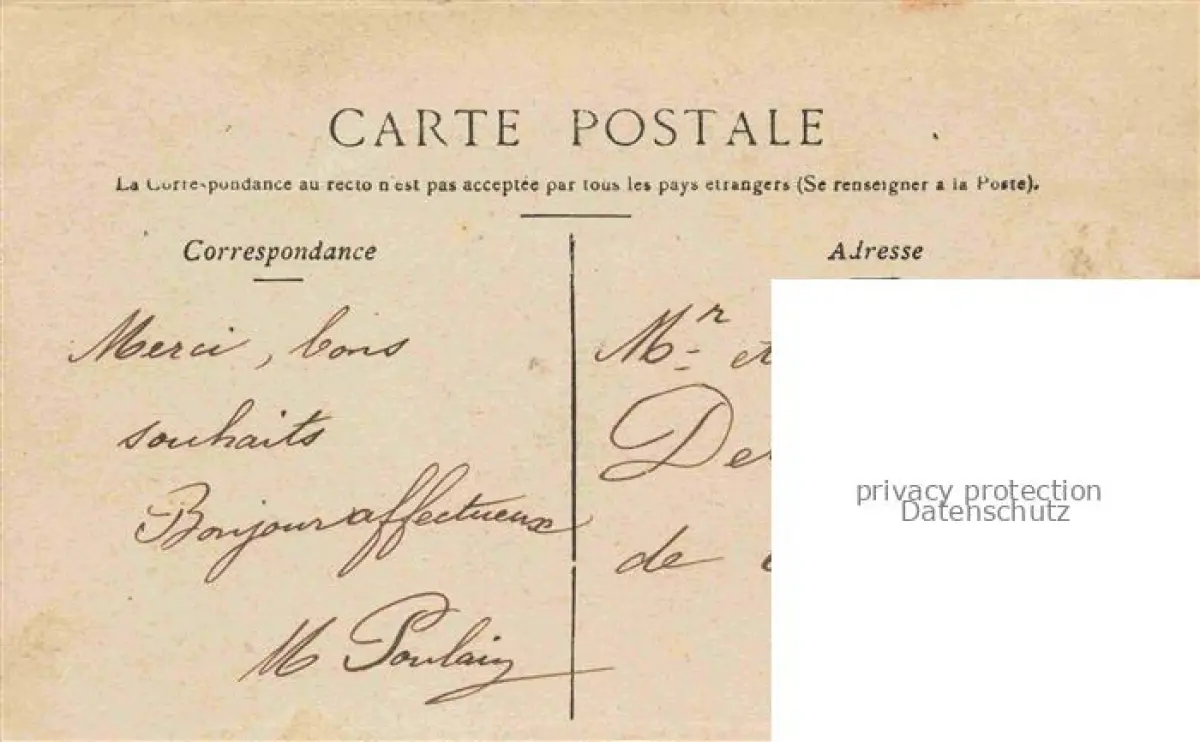 CARTE POSTALE
La Correspondance au recto n'est pas acceptée par tous les pays etrangers (Se renseigner a la Poste).
Correspondance
Merci, bons
souhaits
Bonjour affectueux
M Poulain
Adresse
Mr et
De
de
privacy protection
Datenschutz